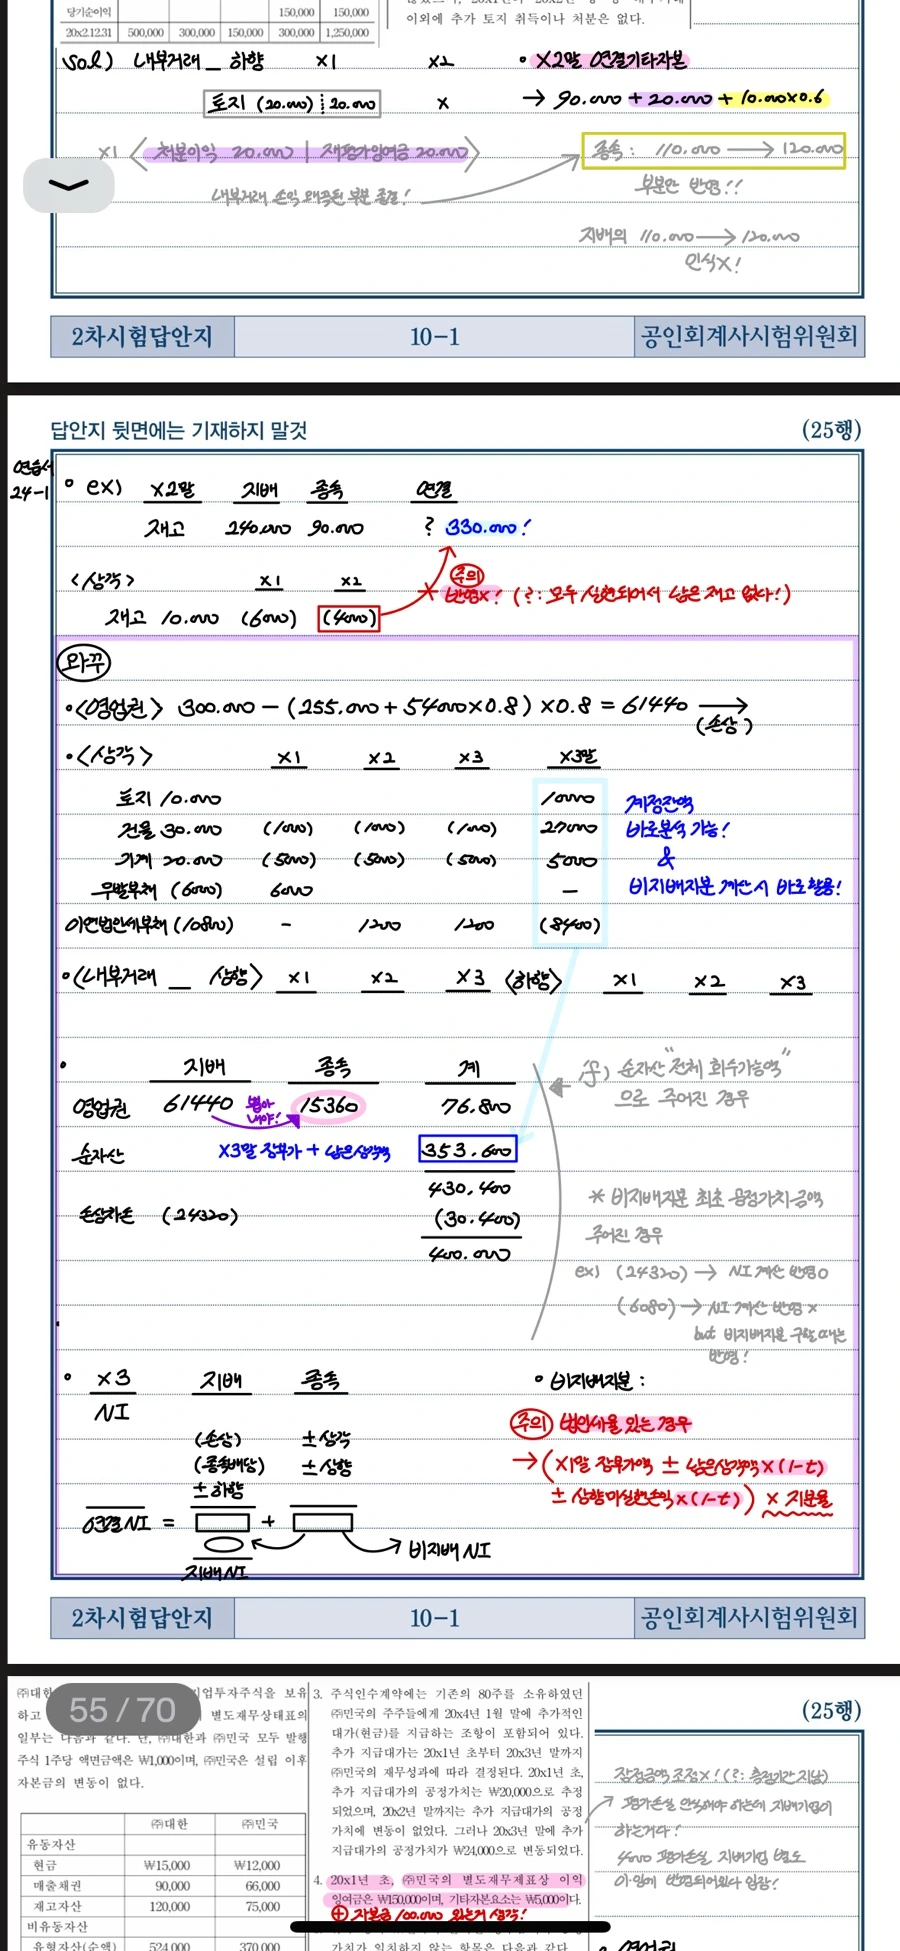 당기순이익 150,000 150,000
이외에 추가 토지 취득이나 처분은 없다.
20x2.12.31 500,000 300,000 150,000 300,000 1,250,000
sol) 내부거래 _ 하향 X1 X2 • X2말 연결기타자본
토지 (20.000) 20.000 X → 90.000 + 20.000 + 10.000×0.6
X1 < 처분이익 20.000 | 재평가잉여금 20.000 >
종속 : 110.000 → 120.000
부분만 반영!!
내부거래 손익 왜곡된 부분 종결!
지배의 110.000 → 120.000
인식X!
2차시험답안지 10-1 공인회계사시험위원회
답안지 뒷면에는 기재하지 말것 (25행)
연습서
24-1
• ex) X2말 지배 종속 연결
재고 240.000 90.000 ? 330.000!
<상각> X1 X2
주의
반영X! (?: 모두 실현되어서 남은 재고 없다!)
재고 10.000 (6000) (4000)
와꾸
• <영업권> 300.000 - (255.000 + 54000×0.8) ×0.8 = 61440 →
(손상)
• <상각> X1 X2 X3 X3말
토지 10.000 10000
계정잔액
건물 30.000 (1000) (1000) (1000) 27000
바로분석 가능!
기계 20.000 (5000) (5000) (5000) 5000
&
우발부채 (6000) 6000 -
비지배지분 계산시 바로 활용!
이연법인세부채 (10800) - 1200 1200 (8400)
• <내부거래 _ 상향> X1 X2 X3 <하향> X1 X2 X3
• 지배 종속 계
순자산 "전체 회수가능액"
으로 주어진 경우
영업권 61440 뽑아내야! 15360 76.800
순자산 X3말 장부가 + 남은상각액 353.600
430.400
손상차손 (24320) (30.400)
400.000
* 비지배지분 최초 공정가치 금액
주어진 경우
ex) (24320) → NI 계산 반영O
(6080) → NI 계산 반영X
but 비지배지분 구할때는
반영!
• X3 지배 종속 • 비지배지분 :
NI
주의 법인세율 있는 경우
(손상) ±상각
(종속배당) ±상향
→ (X1말 장부가액 ± 남은상각액×(1-t)
±하향
± 상향미실현손익×(1-t)) × 지분율
연결NI = +
비지배NI
지배NI
2차시험답안지 10-1 공인회계사시험위원회
55 / 70
(25행)
㈜대한 기업투자주식을 보유
하고 별도재무상태표의
일부는 다음과 같다. 단, ㈜대한과 ㈜민국 모두 발행
주식 1주당 액면금액은 ₩1,000이며, ㈜민국은 설립 이후
자본금의 변동이 없다.
㈜대한 ㈜민국
유동자산
현금 ₩15,000 ₩12,000
매출채권 90,000 66,000
재고자산 120,000 75,000
비유동자산
유형자산(순액) 524,000 370,000
3. 주식인수계약에는 기존의 80주를 소유하였던
㈜민국의 주주들에게 20x4년 1월 말에 추가적인
대가(현금)를 지급하는 조항이 포함되어 있다.
추가 지급대가는 20x1년 초부터 20x3년 말까지
㈜민국의 재무성과에 따라 결정된다. 20x1년 초,
추가 지급대가의 공정가치는 ₩20,000으로 추정
되었으며, 20x2년 말까지는 추가 지급대가의 공정
가치에 변동이 없었다. 그러나 20x3년 말에 추가
지급대가의 공정가치가 ₩24,000으로 변동되었다.
4. 20x1년 초, ㈜민국의 별도재무제표상 이익
잉여금은 ₩150,000이며, 기타자본요소는 ₩5,000이다.
⊕ 자본금 100.000 있는거 생각!
가치가 일치하지 않는 항목은 다음과 같다.
잠정금액 조정X! (?: 측정기간 지남)
평가손실 인식해야 하는데 지배기업이
하는거다!
4000 평가손실 지배기업 별도
이익에 반영되어있다 입장!
• 영업권